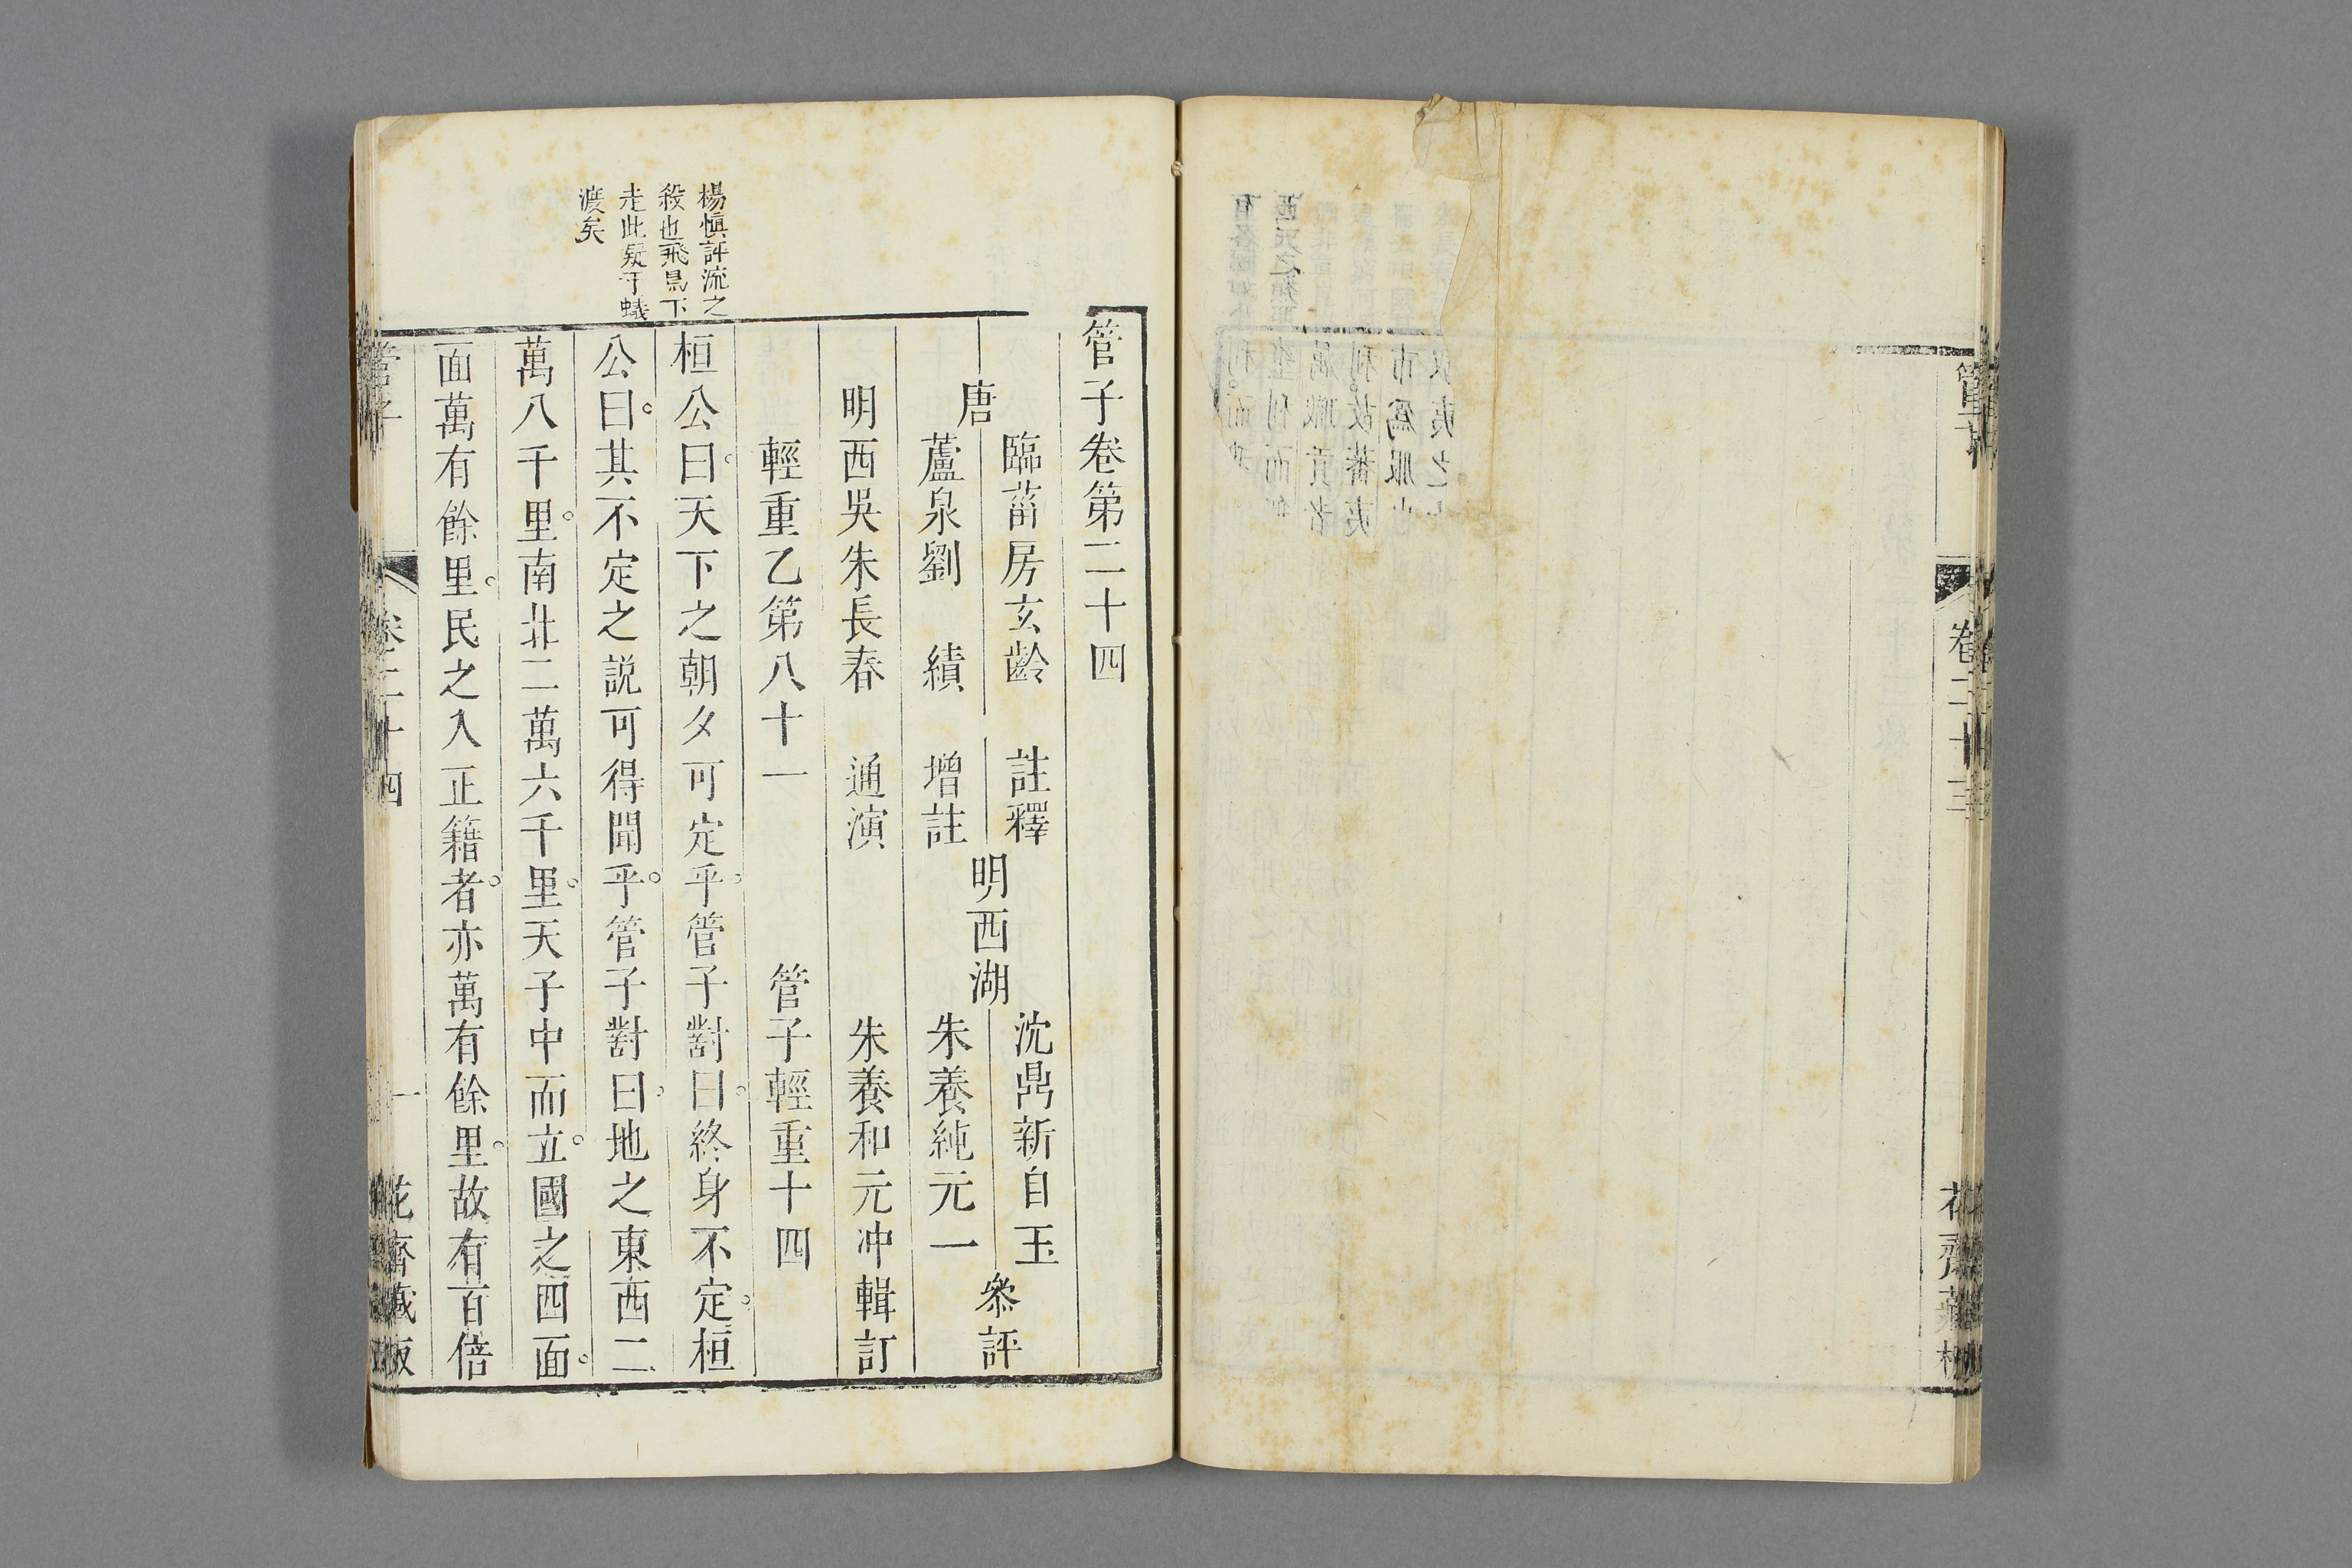 管子
卷二十三
花齋藏板
管子卷第二十四
唐
臨菑房玄齡 註釋
蘆泉劉 績 增註
明西湖
沈鼎新自玉
朱養純元一
參評
明西吳朱長春 通演 朱養和元冲輯訂
輕重乙第八十一 管子輕重十四
桓公曰天下之朝夕可定乎管子對曰終身不定桓
公曰其不定之説可得聞乎管子對曰地之東西二
萬八千里南北二萬六千里天子中而立國之四面
面萬有餘里民之入正籍者亦萬有餘里故有百倍
楊愼評流之
殺也飛鳥下
走此疑于蟻
渡矣
管子
卷二十四
一
花齋藏板